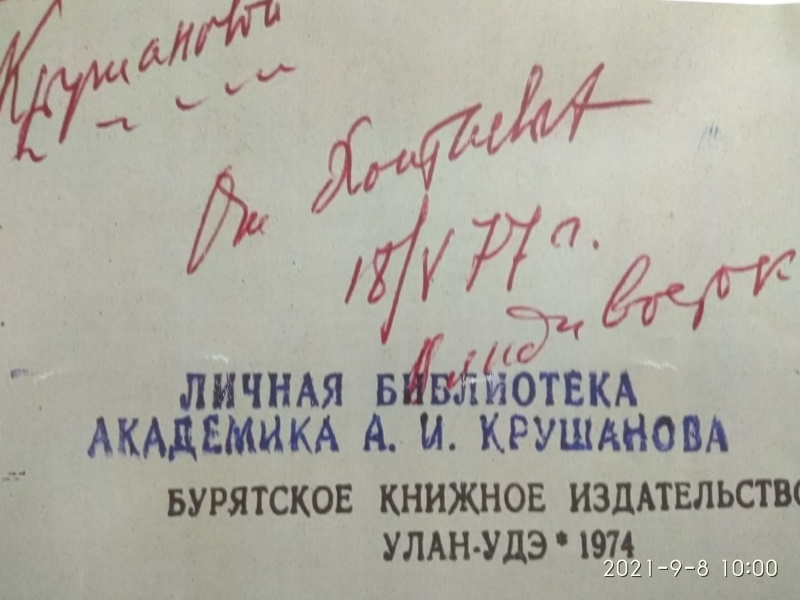 Крушановой
От Хоптиевна
18/V 77 г.
Владивосток
ЛИЧНАЯ БИБЛИОТЕКА
АКАДЕМИКА А. И. КРУШАНОВА
БУРЯТСКОЕ КНИЖНОЕ ИЗДАТЕЛЬСТВО
УЛАН-УДЭ * 1974
2021-9-8 10:00